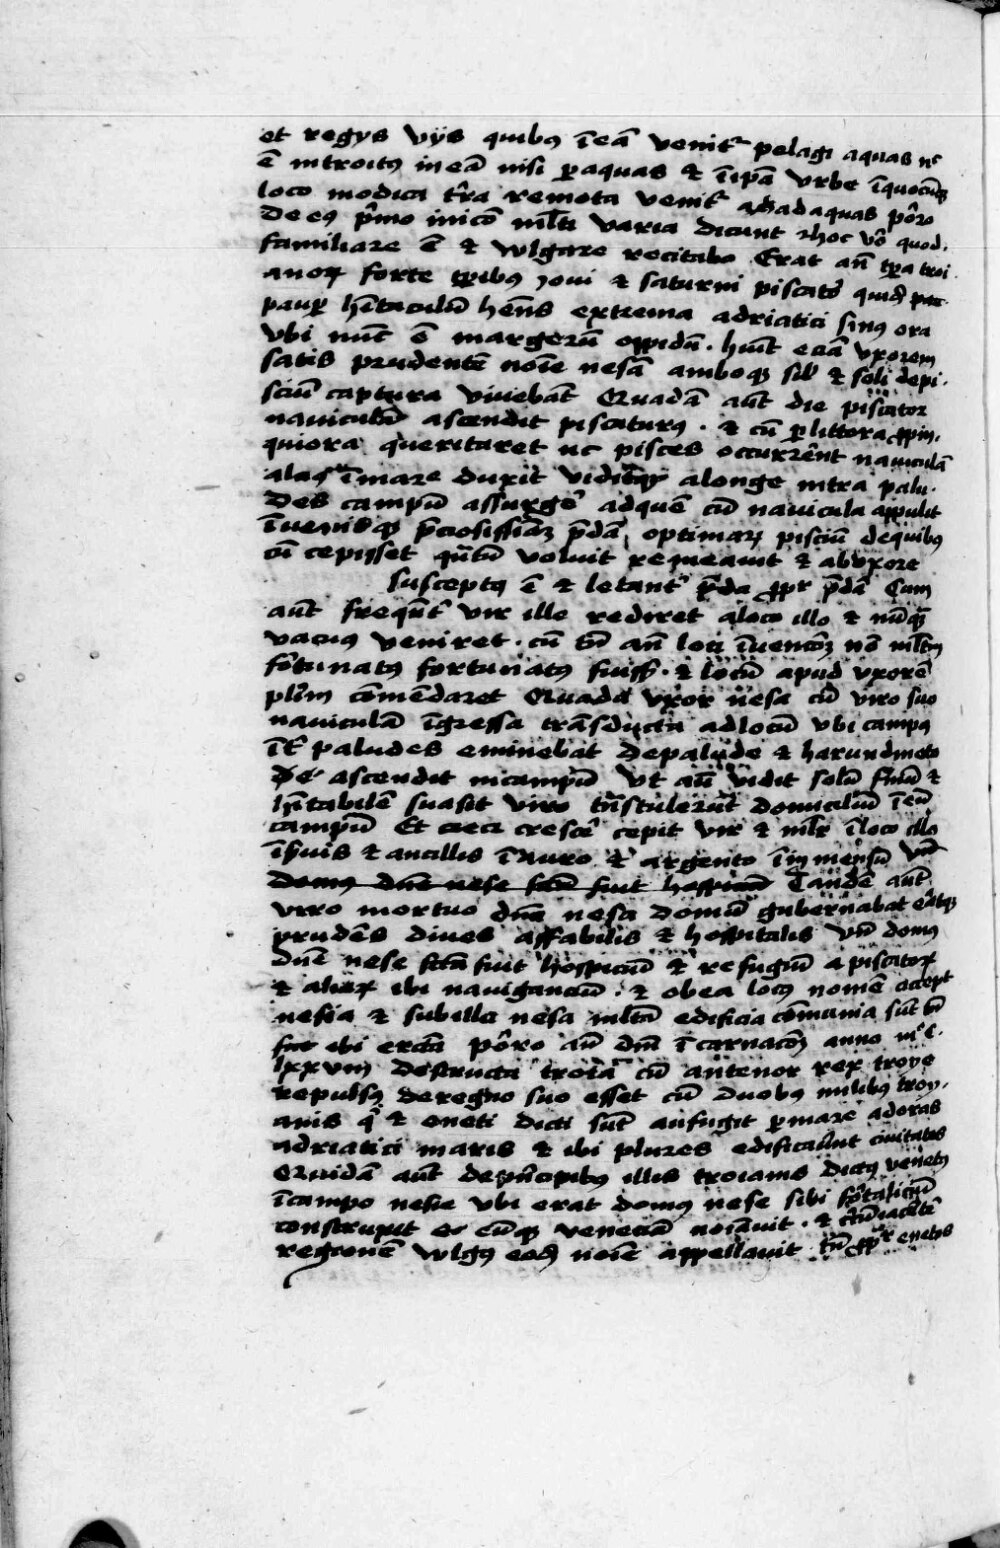 et regys vÿs quibus īeā venit᷑ pelagi aquas nᶜ
ē introitus ineā nisi ꝑaquas & īipā vrbe īquocūqꝫ
loco modica t̄ra remota venit᷑ adaquas pôro
de eꝰ p̄mo inicō ml̄ti varia dicunt & hoc vô quod
familiare ē & wlgare recitabo Erat añ tp̄a troi
anoꝝ forte tp̄ribus Joui & saturni piscator quidā
paup̄ hītaculū hēns extrema adriatici sinꝰ ora
vbi nūc ē margerū oppidū . huīc eciā vxorem
satis prudentē noīe nesā amboqꝫ sibi & soli depi
sciū captura viuebāt Quadā aūt die piscator
nauiculā ascendit piscaturꝰ . & cū ꝑ littora ꝓpin
quiora queritaret nc pisces occurrēnt nauiculā
īmare duxit viditqꝫ alonge intra palu
des campū assurgē adquē cū nauicula appulit
īuenitqꝫ p̄ciosissimā p̄dā optimaꝝ pisciū dequibus
cū cepisset qn̄tū voluit remeauit & abvxore
susceptꝰ ē & letant᷑ ꝓpt᷑ p̄dā Cum
aūt frequēt᷑ vir ille rediret aloco illo & nūqꝫ
vacuus veniret . cū tn̄ añ loci īuencōꝫ nō ml̄tm
fortunatꝰ fuiss . & locū apud vxorē
plīm cōmēdaret Quadā vxor nesa cū viro suo
nauiculā īgressa trāsducta adlocū vbi campꝰ
īt᷑ paludes eminebat depalude & harundineto
ascendit incampū Vt aūt vidit solū firmū &
hītabilē suasit viro trāstulerūt domiciliū īeū
campū Et crescē cepit vir & ml̄r īloco illo
īs̄uis & ancillis īauro & argento īmensū vñ
domus dn̄e nese fctū fuit hospiciū Tandē aūt
viro mortuo dn̄a nesa domū gubernabat eratqꝫ
prudēs diues affabilis & hospitalis vñ domus
dn̄e nese fctā fuit hospiciū & refugiū a piscatoꝝ
& alioꝝ ibi nauiganciū . & obea locus nomē accepit
nesia & subilla nesa ml̄tā edificia cōmunia sūt
ibi erc̄ta pôro añ dn̄i īcarnacōꝫ anno
lxxviii destructa troia cū antenor rex troye
repulsꝰ deregno suo esset cū duobus milibus troy
anis qͥ & eneti dicti sūt aufugit ꝑmare adoras
adriatici maris & ibi plures edificaūnt ciuitates
Quidā aūt deprīcipibꝰ illis troianis dictꝰ venetꝰ
īcampo nesie vbi erat domus nese sibi fôrtaliciū
construxit & eūqꝫ veneciā noīauit . &
regionē wlgꝰ eodē noīe appellauit ꝓpt᷑ enetos